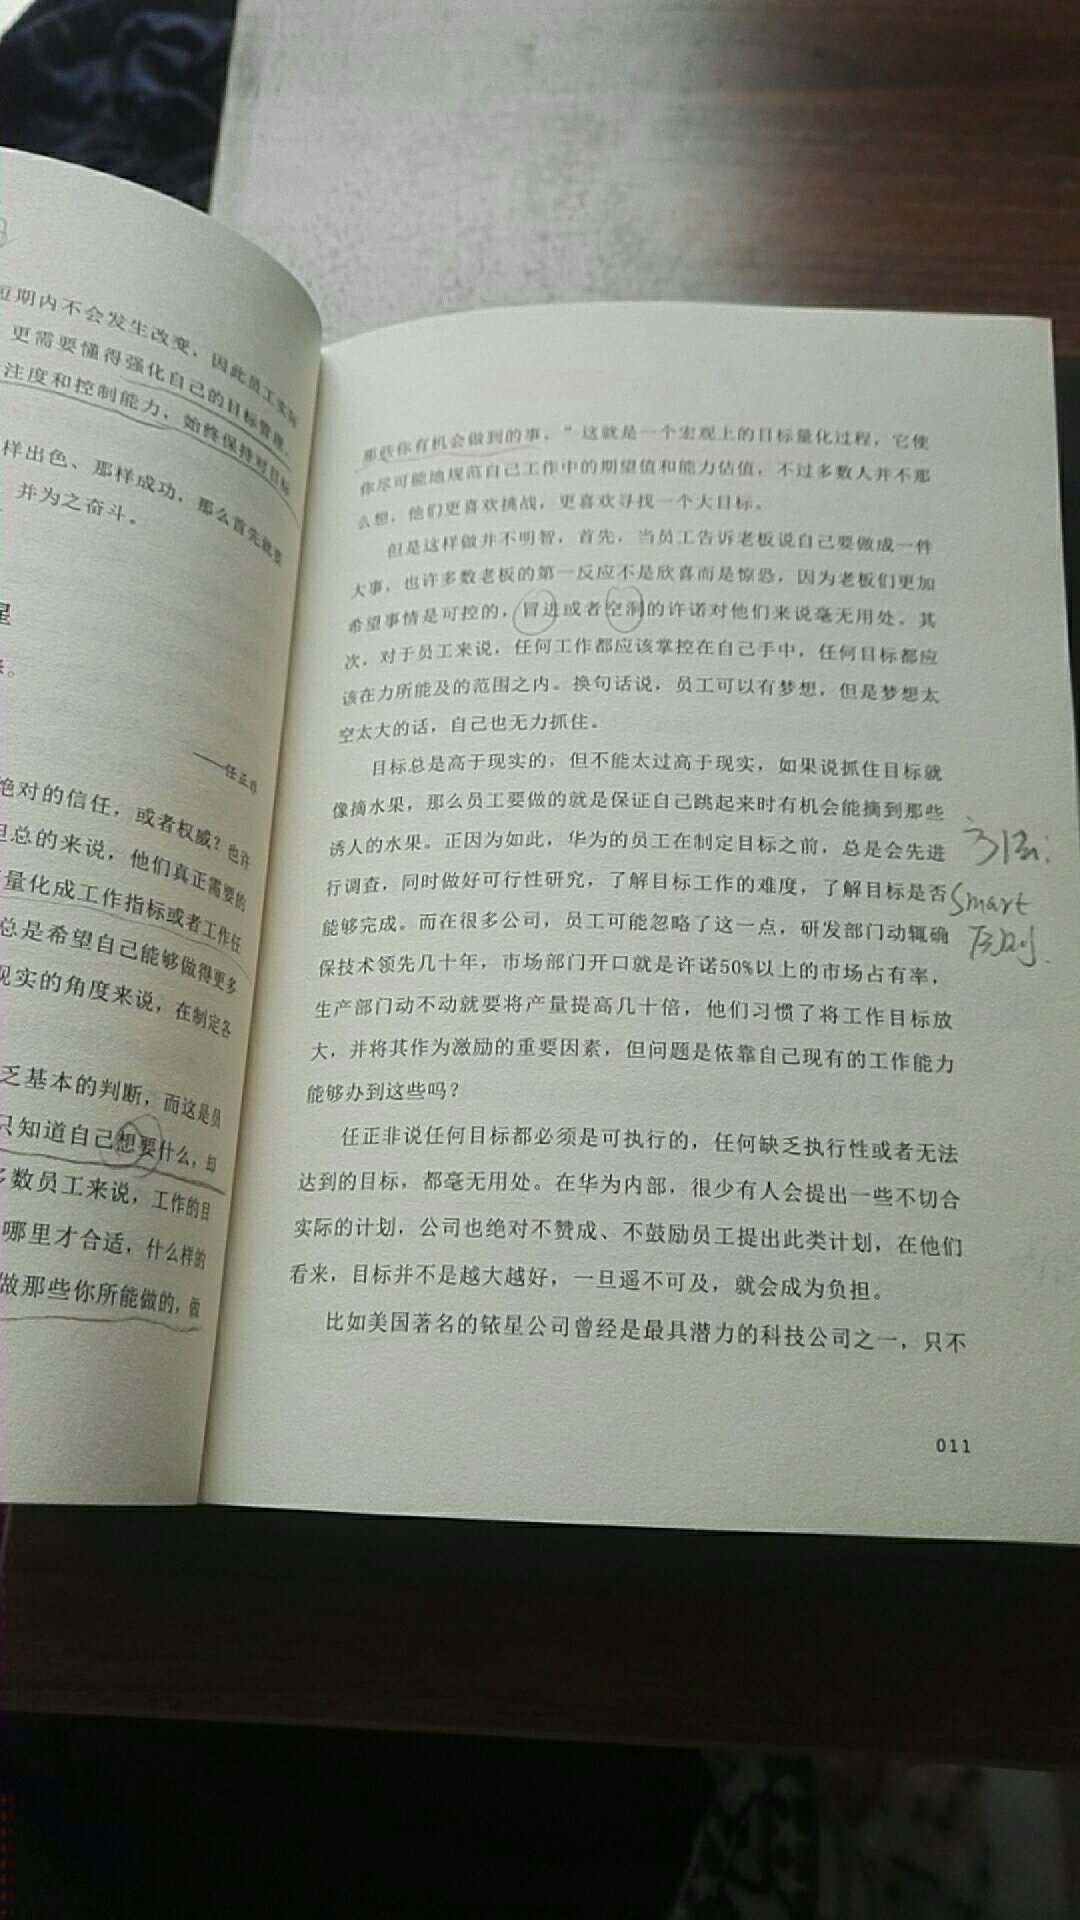 短期内不会发生改变，因此员工实际
更需要懂得强化自己的目标管理、
注度和控制能力，始终保持对目标
样出色、那样成功，那么首先就要
，并为之奋斗。
——任正非
绝对的信任，或者权威？也许
但总的来说，他们真正需要的
量化成工作指标或者工作任
总是希望自己能够做得更多
现实的角度来说，在制定各
乏基本的判断，而这是员
只知道自己想要什么，却
多数员工来说，工作的目
哪里才合适，什么样的
做那些你所能做的，做
那些你有机会做到的事。”这就是一个宏观上的目标量化过程，它使
你尽可能地规范自己工作中的期望值和能力估值，不过多数人并不那
么想，他们更喜欢挑战，更喜欢寻找一个大目标。
但是这样做并不明智，首先，当员工告诉老板说自己要做成一件
大事，也许多数老板的第一反应不是欣喜而是惊恐，因为老板们更加
希望事情是可控的，冒进或者空洞的许诺对他们来说毫无用处。其
次，对于员工来说，任何工作都应该掌控在自己手中，任何目标都应
该在力所能及的范围之内。换句话说，员工可以有梦想，但是梦想太
空太大的话，自己也无力抓住。
目标总是高于现实的，但不能太过高于现实，如果说抓住目标就
像摘水果，那么员工要做的就是保证自己跳起来时有机会能摘到那些
诱人的水果。正因为如此，华为的员工在制定目标之前，总是会先进
行调查，同时做好可行性研究，了解目标工作的难度，了解目标是否
能够完成。而在很多公司，员工可能忽略了这一点，研发部门动辄确
保技术领先几十年，市场部门开口就是许诺50%以上的市场占有率，
生产部门动不动就要将产量提高几十倍，他们习惯了将工作目标放
大，并将其作为激励的重要因素，但问题是依靠自己现有的工作能力
能够办到这些吗？
任正非说任何目标都必须是可执行的，任何缺乏执行性或者无法
达到的目标，都毫无用处。在华为内部，很少有人会提出一些不切合
实际的计划，公司也绝对不赞成、不鼓励员工提出此类计划，在他们
看来，目标并不是越大越好，一旦遥不可及，就会成为负担。
比如美国著名的铱星公司曾经是最具潜力的科技公司之一，只不
011
Smart
原则.